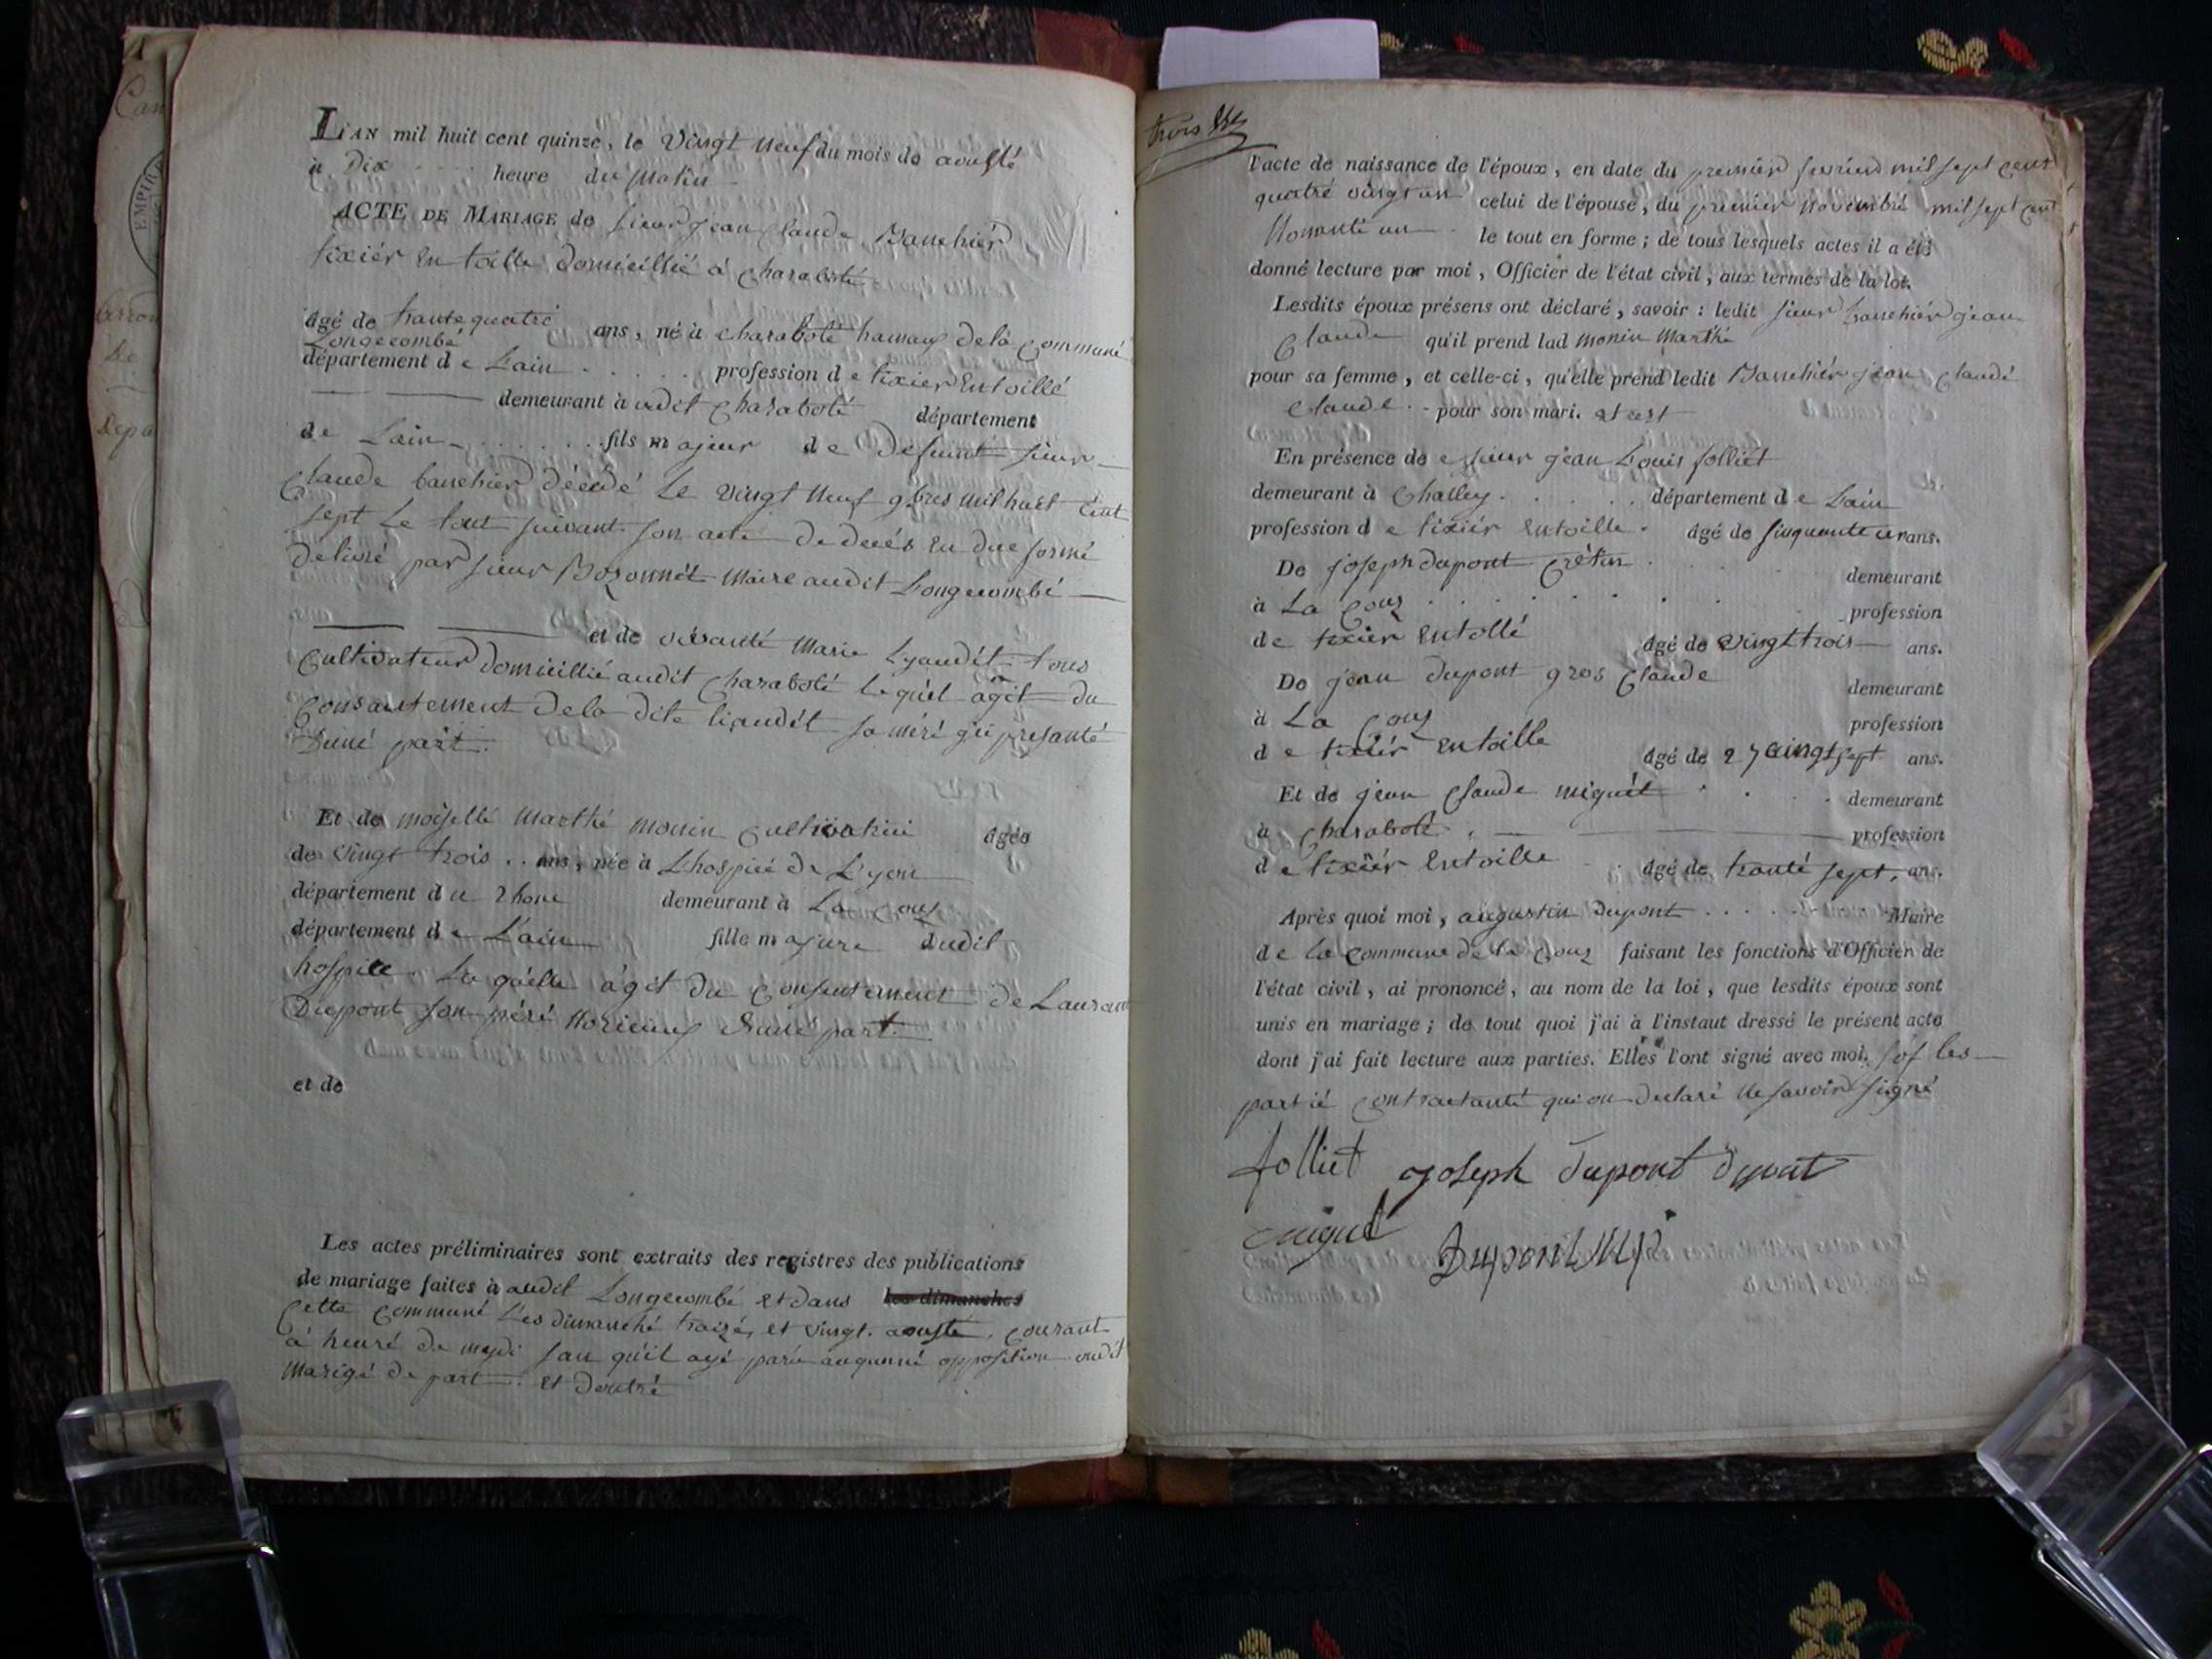 L'AN mil huit cent quinze, le Vingt Neuf du mois de aousté
à Dix heure du Matin
ACTE DE MARIAGE de sieur jean Claude Banchiér
tixiér En toille Domicillié à Charaboté
âgé de trante quatré ans, né à Charaboté hamaux de la Communé
Longecombé
département de Lain profession de tixier En toillé
demeurant à udit Charaboté département
de Lain fils majeur de Defunt sieur
Claude banchier décédé Le vingt Neuf 9bres mil huit Cent
sept Le tout suivant son acte De decés En due formé
delivré par sieur Bozonnét Maire audit Longecombé
et de vivanté Marie Lyaudét tous
Cultivateur domicillié audit Charaboté Lequél agit du
Consantement de la dite liaudét sa méré ici presanté
Duné part.
Et de moiselle Marthé monin Cultivatrice âgée
de Vingt trois ans, née à L'hospice de Lyon
département du Rhone demeurant à La Couz
département de L'ain fille majure dudit
hospice. La quélle agit du Consentement de Laurant
Dupont son péré Noricieux d'autre part.
et de
Les actes préliminaires sont extraits des registres des publications
de mariage faites à audit Longecombé et dans les dimanches
Cette Communé Les dimanché traizé, et vingt. aousté. Courant
à heuré de mydi san qu'il ayé paru auqunné opposition audit
marigé de part et d'outré
trois
l'acte de naissance de l'époux, en date du premiér fevriérd mil sept Cent
quatré vingt un celui de l'épouse, du premiér Novembré mil sept Cent
Nonanté un le tout en forme; de tous lesquels actes il a été
donné lecture par moi, Officier de l'état civil, aux termes de la loi.
Lesdits époux présens ont déclaré, savoir: ledit sieur banchiér jean
Claude qu'il prend lad monin Marthé
pour sa femme, et celle-ci, qu'elle prend ledit Banchiér jean Claudé
Claude pour son mari.
En présence de sieur jean Louis folliét
demeurant à Challey département de Lain
profession de tixiér En toille âgé de sinquante un ans.
De joseph dupont Crétin demeurant
à La Couz profession
de tixiér En tollé âgé de vingt trois ans.
De jean dupont gros Claude demeurant
à La Couz profession
de tixiér En toille âgé de 27 vingt sept ans.
Et de jean Claude miguét demeurant
à Charaboté profession
de tixiér En toille âgé de tranté sept, ans.
Après quoi moi, augustin dupont Maire
de la Commune de la Couz faisant les fonctions d'Officier de
l'état civil, ai prononcé, au nom de la loi, que lesdits époux sont
unis en mariage; de tout quoi j'ai à l'instant dressé le présent acte
dont j'ai fait lecture aux parties. Elles l'ont signé avec moi, sof les
partié Contractanté qui on declaré ne savoir signé
folliet joseph dupont dupont
miguet Dupont